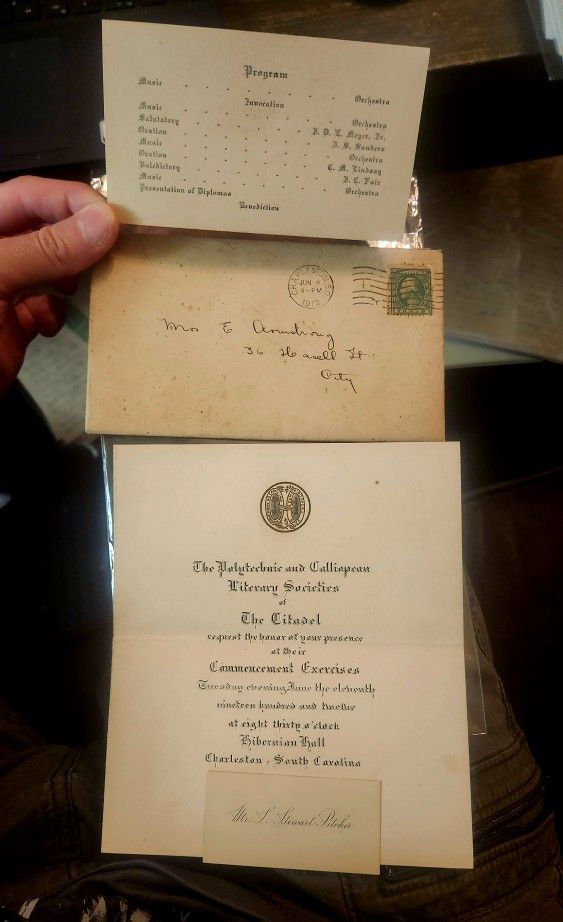 Program
Music . . . . . . . Orchestra
Invocation
Music . . . . . . . Orchestra
Salutatory . . . . . . J. D. E. Meyer, Jr.
Oration . . . . . . . J. S. Sanders
Music . . . . . . . Orchestra
Oration . . . . . . . C. M. Lindsay
Valedictory . . . . . . J. C. Fair
Music . . . . . . . Orchestra
Presentation of Diplomas
Benediction
CHARLESTON, S.C.
JUN
4-PM
1912
Mrs E Armstrong
36 Hasell St.
City
The Polytechnic and Calliopean
Literary Societies
of
The Citadel
request the honor of your presence
at their
Commencement Exercises
Tuesday evening June the eleventh
nineteen hundred and twelve
at eight thirty o'clock
Hibernian Hall
Charleston, South Carolina
Mr. S. Stewart Pitcher